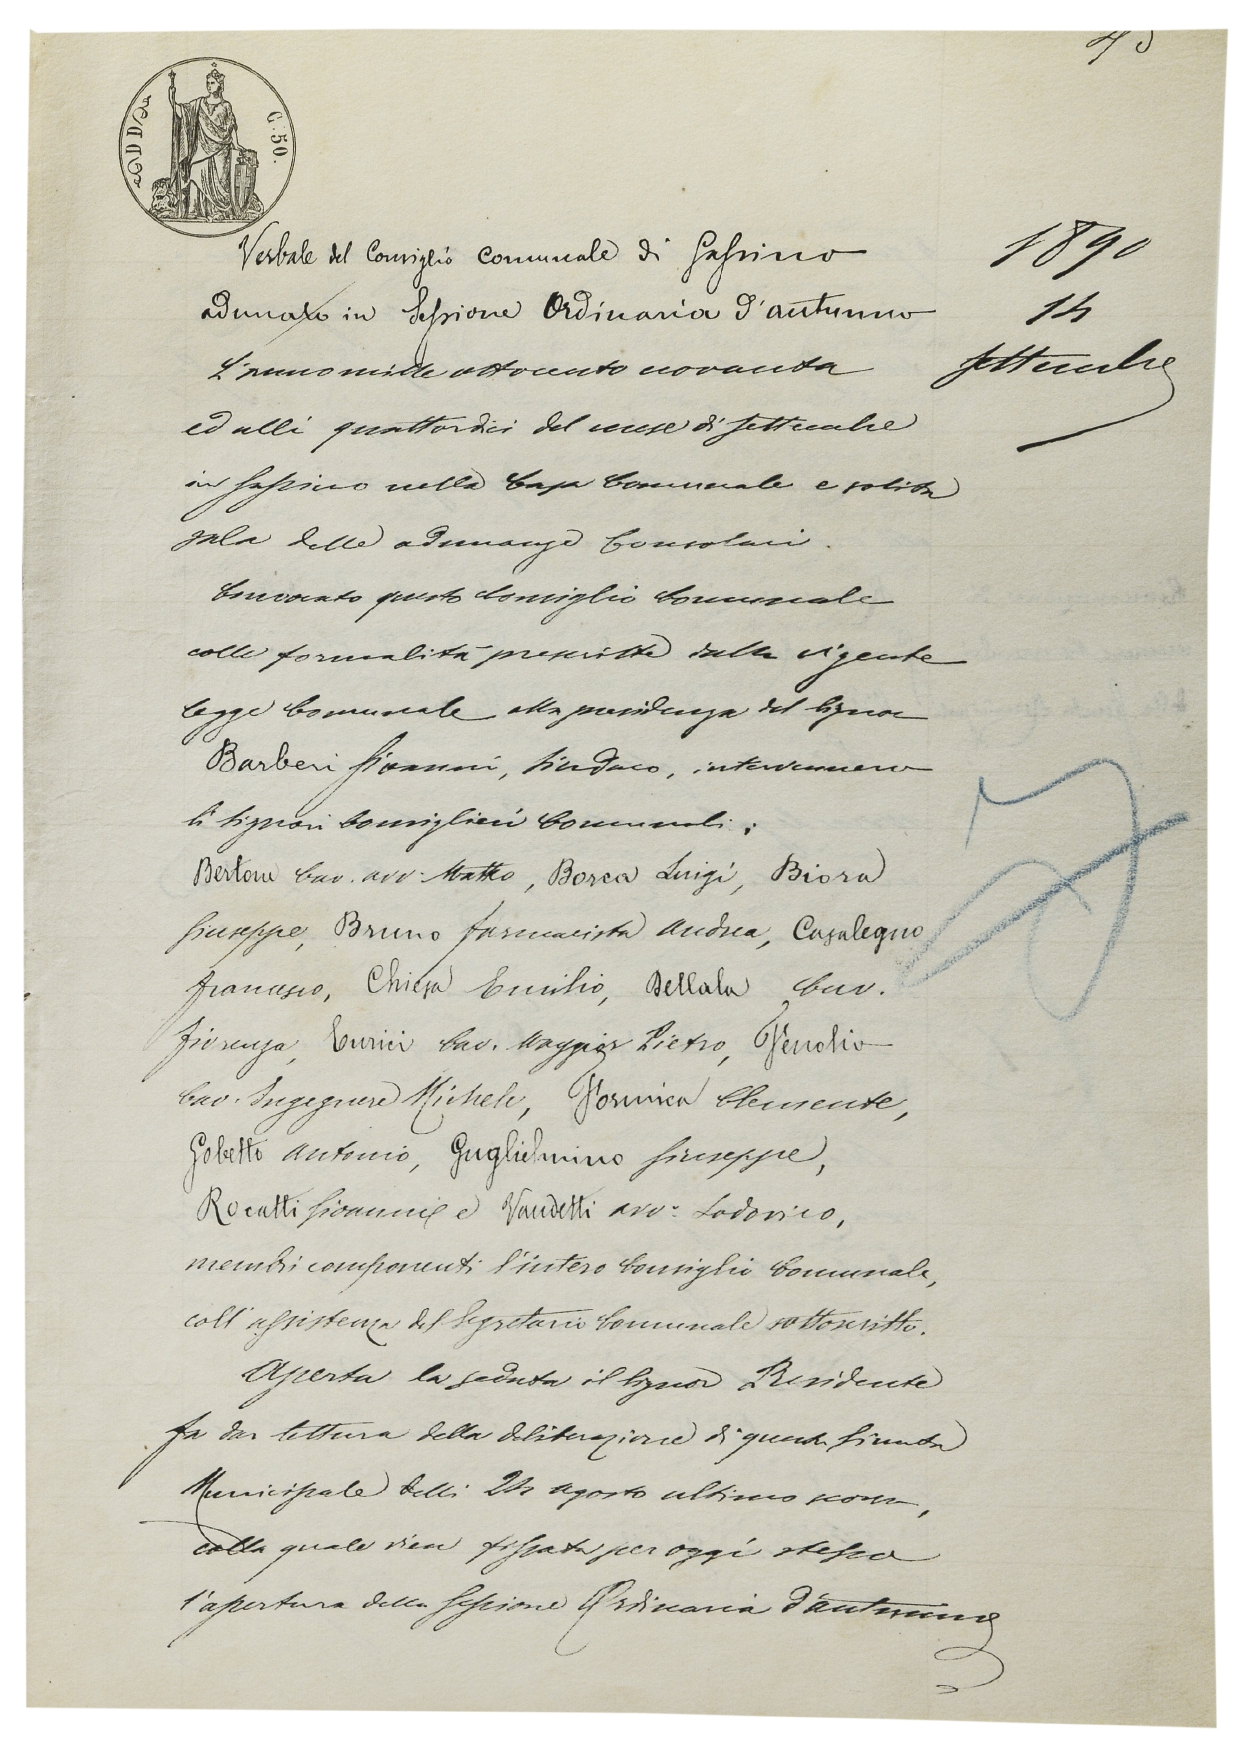 C. 50.
1890
14
Settembre
Verbale del Consiglio Comunale di Gassino
adunato in Sessione Ordinaria d'autunno
L'anno mille ottocento novanta
ed alli quattordici del mese di Settembre
in Gassino nella Casa Comunale e solita
sala delle adunanze Consolari.
Convocato questo Consiglio Comunale
colle formalità prescritte dalla vigente
legge Comunale alla presidenza del Signor
Barberi Giovanni, Sindaco, intervennero
li Signori Consiglieri Comunali;
Bertone Cav. avv. Matteo, Bosca Luigi, Biora
Giuseppe, Bruno farmacista Andrea, Casalegno
Francesco, Chiesa Emilio, Dellala Cav.
Fiorenzo, Enrici Cav. Maggior Pietro, Fenolio
Cav. Ingegnere Michele, Formica Clemente,
Gobetto Antonio, Guglielmino Giuseppe,
Rocatti Giovanni e Vaudetti avv. Lodovico,
membri componenti l'intero Consiglio Comunale,
coll'assistenza del Segretario Comunale sottoscritto.
Aperta la seduta il Signor Presidente
fa dar lettura della deliberazione di questa Giunta
Municipale delli 24 agosto ultimo scorso,
colla quale vien fissata per oggi stesso
l'apertura della Sessione Ordinaria d'autunno